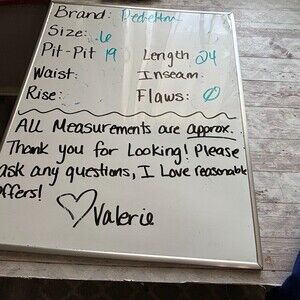 Brand:
Size: 6
Pit-Pit 19 Length 24
Waist: Inseam:
Rise: Flaws: 0
ALL Measurements are approx.
Thank you for Looking! Please
ask any questions, I Love reasonable
offers!
♡Valerie